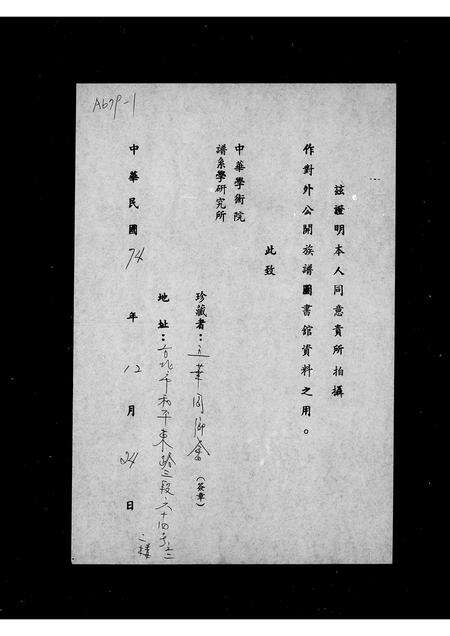 A679-1
茲證明本人同意貴所拍攝
作對外公開族譜圖書館資料之用。
此致
中華學術院
譜系學研究所
珍藏者：同鄉會（簽章）
地址：台北市和平東路三段六十四号之二
二樓
中華民國74年12月24日